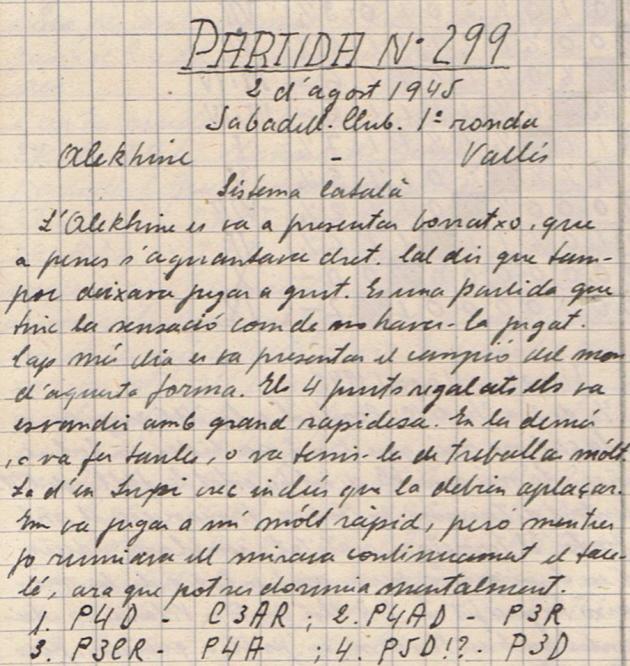 PARTIDA Nº 299
2 d'agost 1945
Sabadell. Club. 1ª ronda
Alekhine - Vallés
Sistema Català
L'Alekhine es va a presentar borratxo, que
a penes s'aguantava dret. Cal dir que tam-
poc deixava jugar a gust. Es una partida que
tinc la sensació com de no haver-la jugat.
Cap més dia es va presentar el campió del mon
d'aquesta forma. Els 4 punts regalats els va
esvandir amb grand rapidesa. En la demés
, o va fer taules, o va tenir-la de treballar mólt.
La d'en crec inclús que la debien aplaçar.
Em va jugar a mi mólt ràpid, peró mentres
jo rumiava ell mirava continuament el tau-
lé, ara que potser dormia mentalment.
1. P4D - C3AR ; 2. P4AD - P3R
3. P3CR - P4A ; 4. P5D!? - P3D